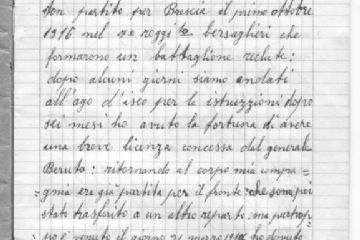 Son partito per Brescia il primo ottobre
1916 nel 7º reggito bersaglieri che
formarono un battaglione reclute:
dopo alcuni giorni siamo andati
all'ago d'iseo per le istruzzioni dopo
sei mesi ho avuto la fortuna di avere
una breve licenza concessa dal generale
Beruto: ritornando al corpo mia compa=
=gnia era già partita per il fronte: che sono poi
stato trasferito a un altro reparto, ma purtrop=
po è venuto il giorno 21 marzo ho dovuto